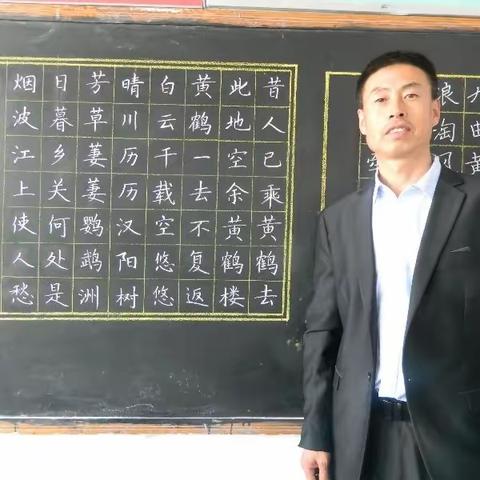 九曲黄
浪淘风
昔人已乘黄鹤去
此地空余黄鹤楼
黄鹤一去不复返
白云千载空悠悠
晴川历历汉阳树
芳草萋萋鹦鹉洲
日暮乡关何处是
烟波江上使人愁